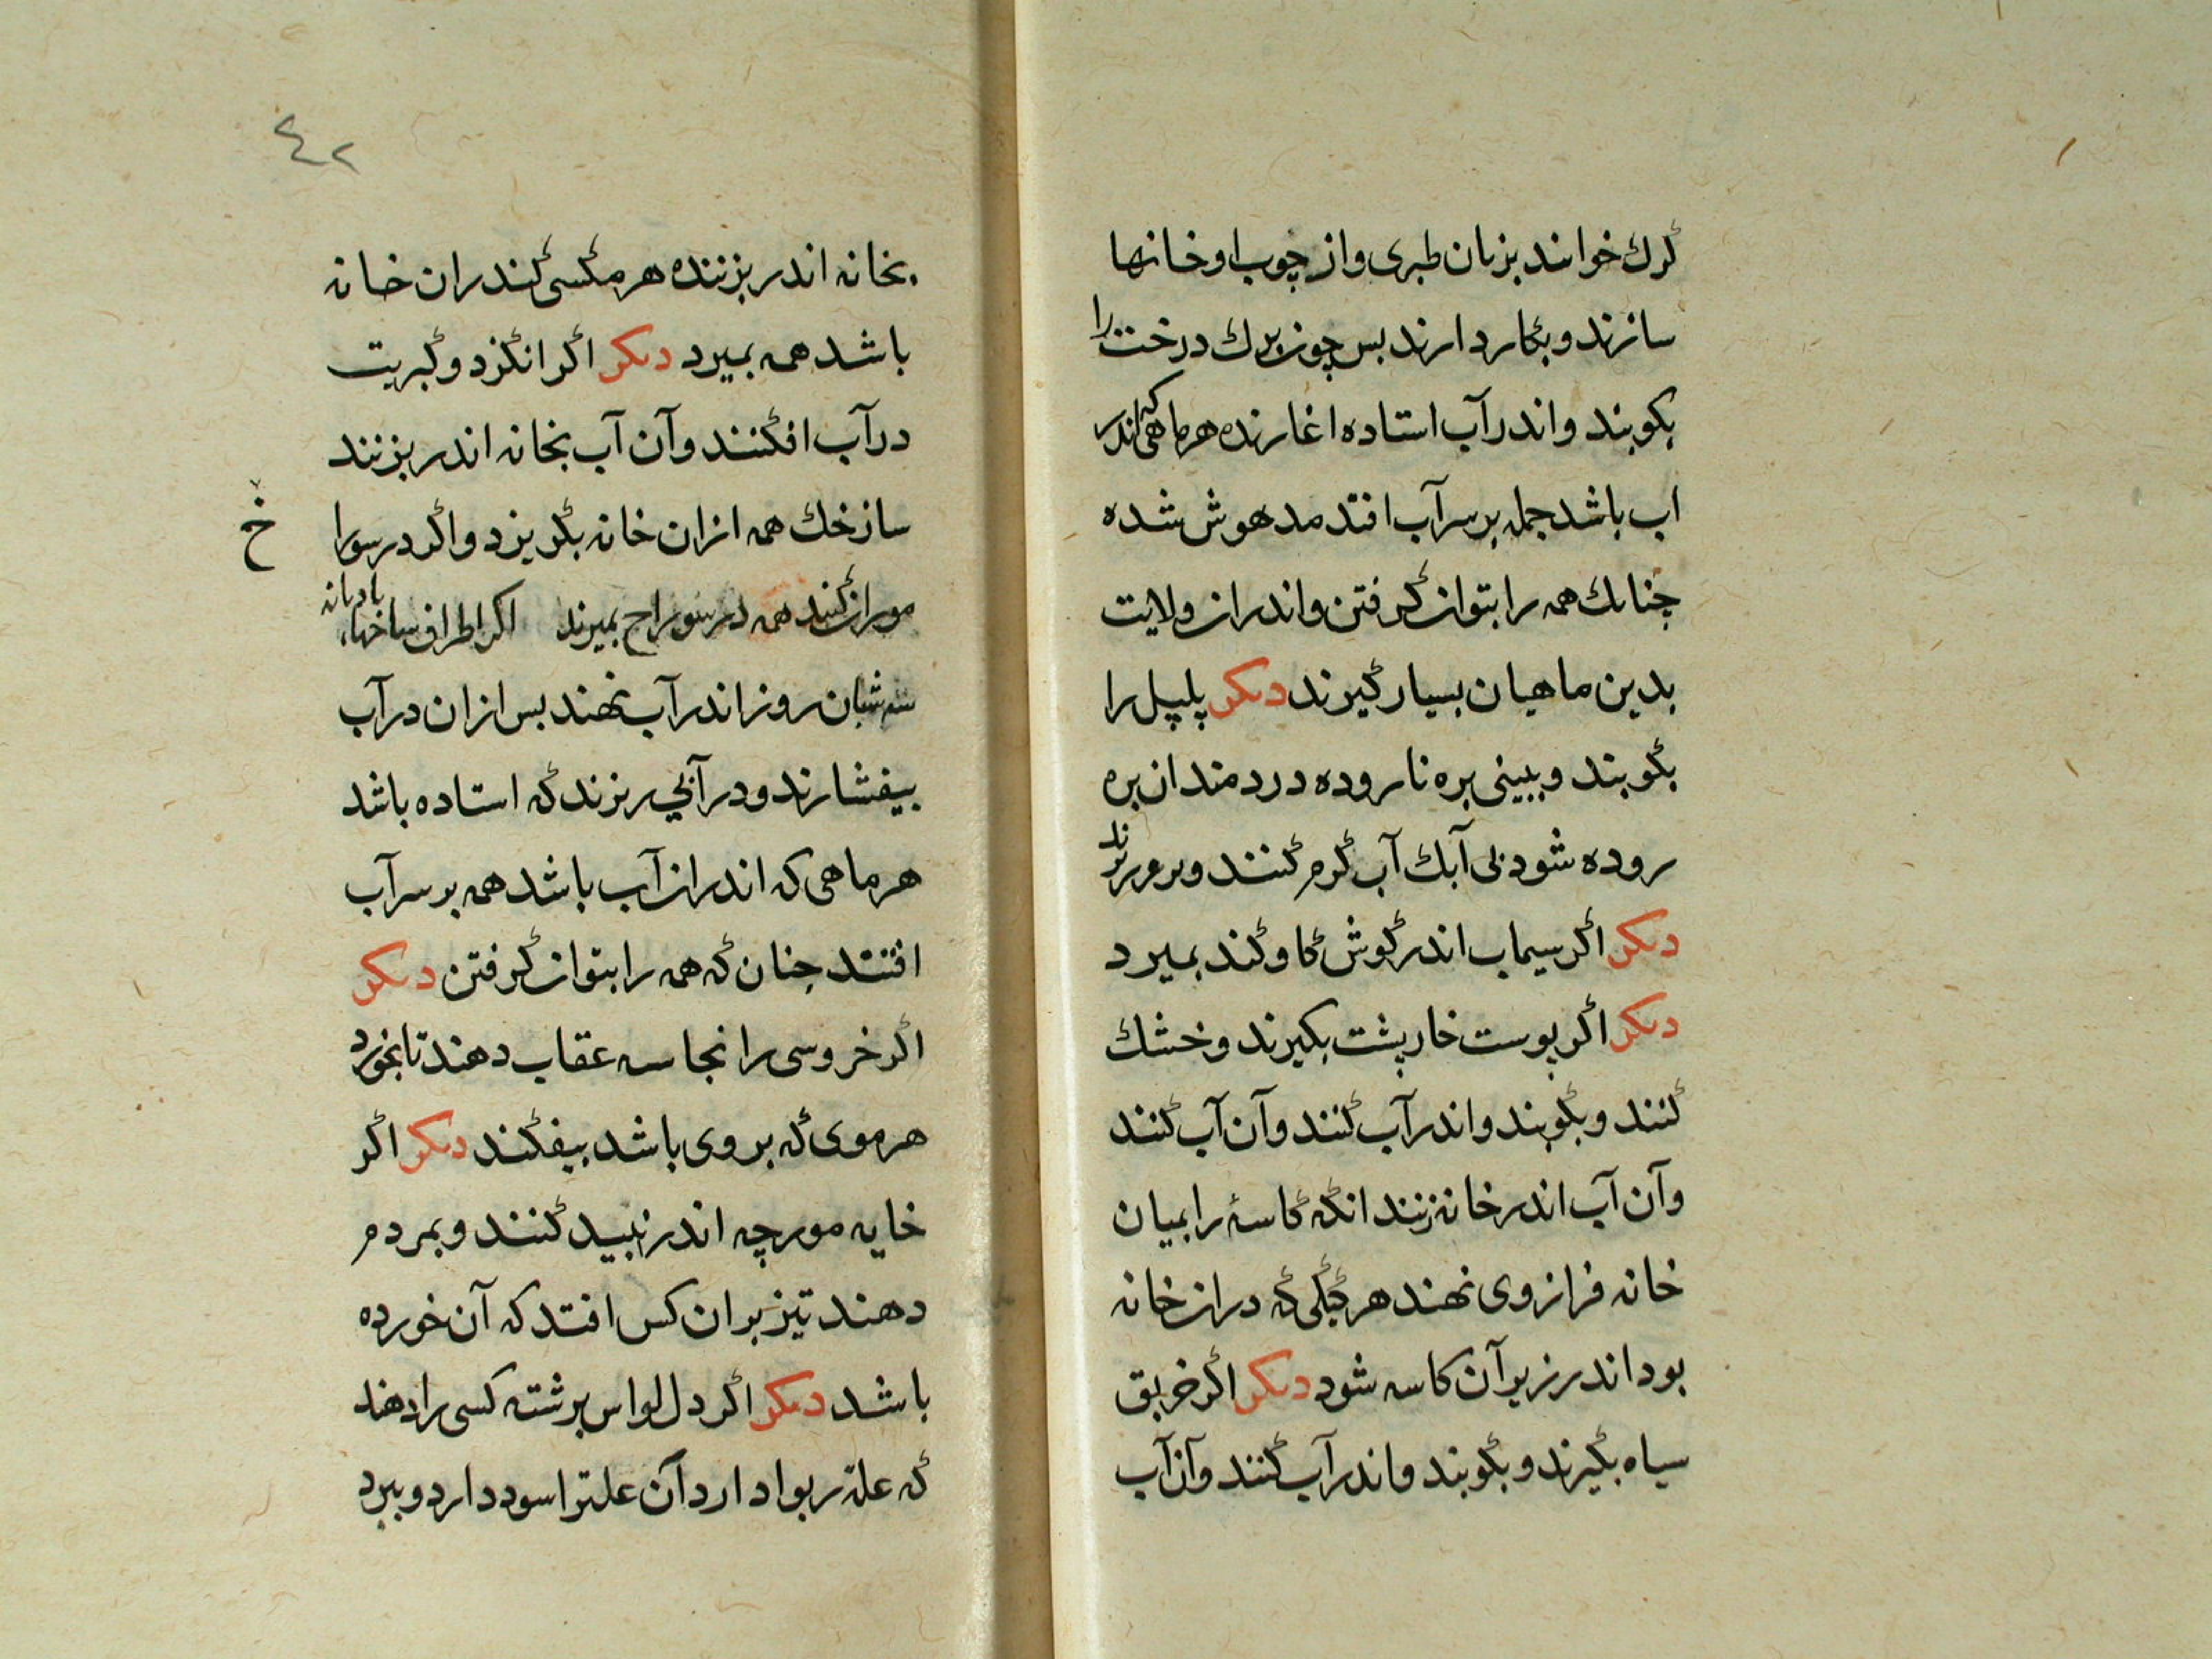 کرك خوانند بزبان طبری و از چوب او خانها
سازند و بکار دارند بس چون برك درخت را
بکوبند و اندر آب استاده اغارند هر ماهی که اندر
اب باشد جمله بر سر آب افتد مدهوش شده
چنانك همه را بتوان کرفتن و اندران ولایت
بدین ماهیان بسیار کیرند دیکر پلپل را
بکوبند و ببینی بره نا روده دردمند ان بره
روده شود بی آبك آب کرم کنند و
دیکر اکر سیماب اندر کوش کاو کند بمیرد
دیکر اکر پوست خار پشت بکیرند و خشك
کنند و بکوبند و اندر آب کنند و آن آب کنند
و آن آب اندر خانه زنند انکه کاسهٔ را بمیان
خانه فراز وی نهند هر کیکی که دران خانه
بود اندر زیر آن کاسه شود دیکر اکر خربق
سیاه بکیرند و بکوبند و اندر آب کنند و آن آب
٤٢
بخانه اندر بزنند هر مکسی کندران خانه
باشد همه بمیرد دیکر اکر انکزد و کبریت
در آب افکنند و آن آب بخانه اندر بزنند
سازخك همه ازان خانه بکریزد و اکر در سورا
خ
موران کنند همه در سوراخ بمیرند اکر اطراف ساخها بادیانه
سه شبان روز اندر آب نهند بس ازان در آب
بیفشارند و در آبی ریزند که استاده باشد
هر ماهی که اندران آب باشد همه بر سر آب
افتند جنان که همه را بتوان کرفتن دیکر
اکر خروسی را نجاسه عقاب دهند تا بخورد
هر موی که بر وی باشد بیفکند دیکر اکر
خایه مورچه اندر نبید کنند و بمردم
دهند تیز بران کس افتد که آن خورده
باشد دیکر اکر دل لواس برشته کسی را دهند
که علة ربوا دارد آن علترا سود دارد و ببرد